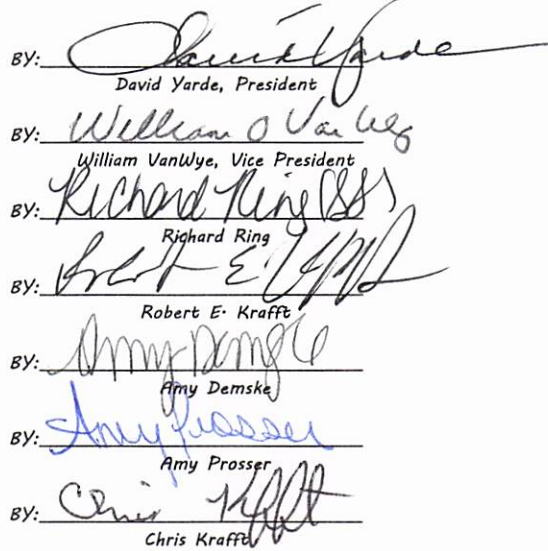 BY: David Yarde
David Yarde, President
BY: William O Van Wye
William VanWye, Vice President
BY: Richard Ring
Richard Ring
BY: Robert E Krafft
Robert E. Krafft
BY: Amy Demske
Amy Demske
BY: Amy Prosser
Amy Prosser
BY: Chris Krafft
Chris Krafft